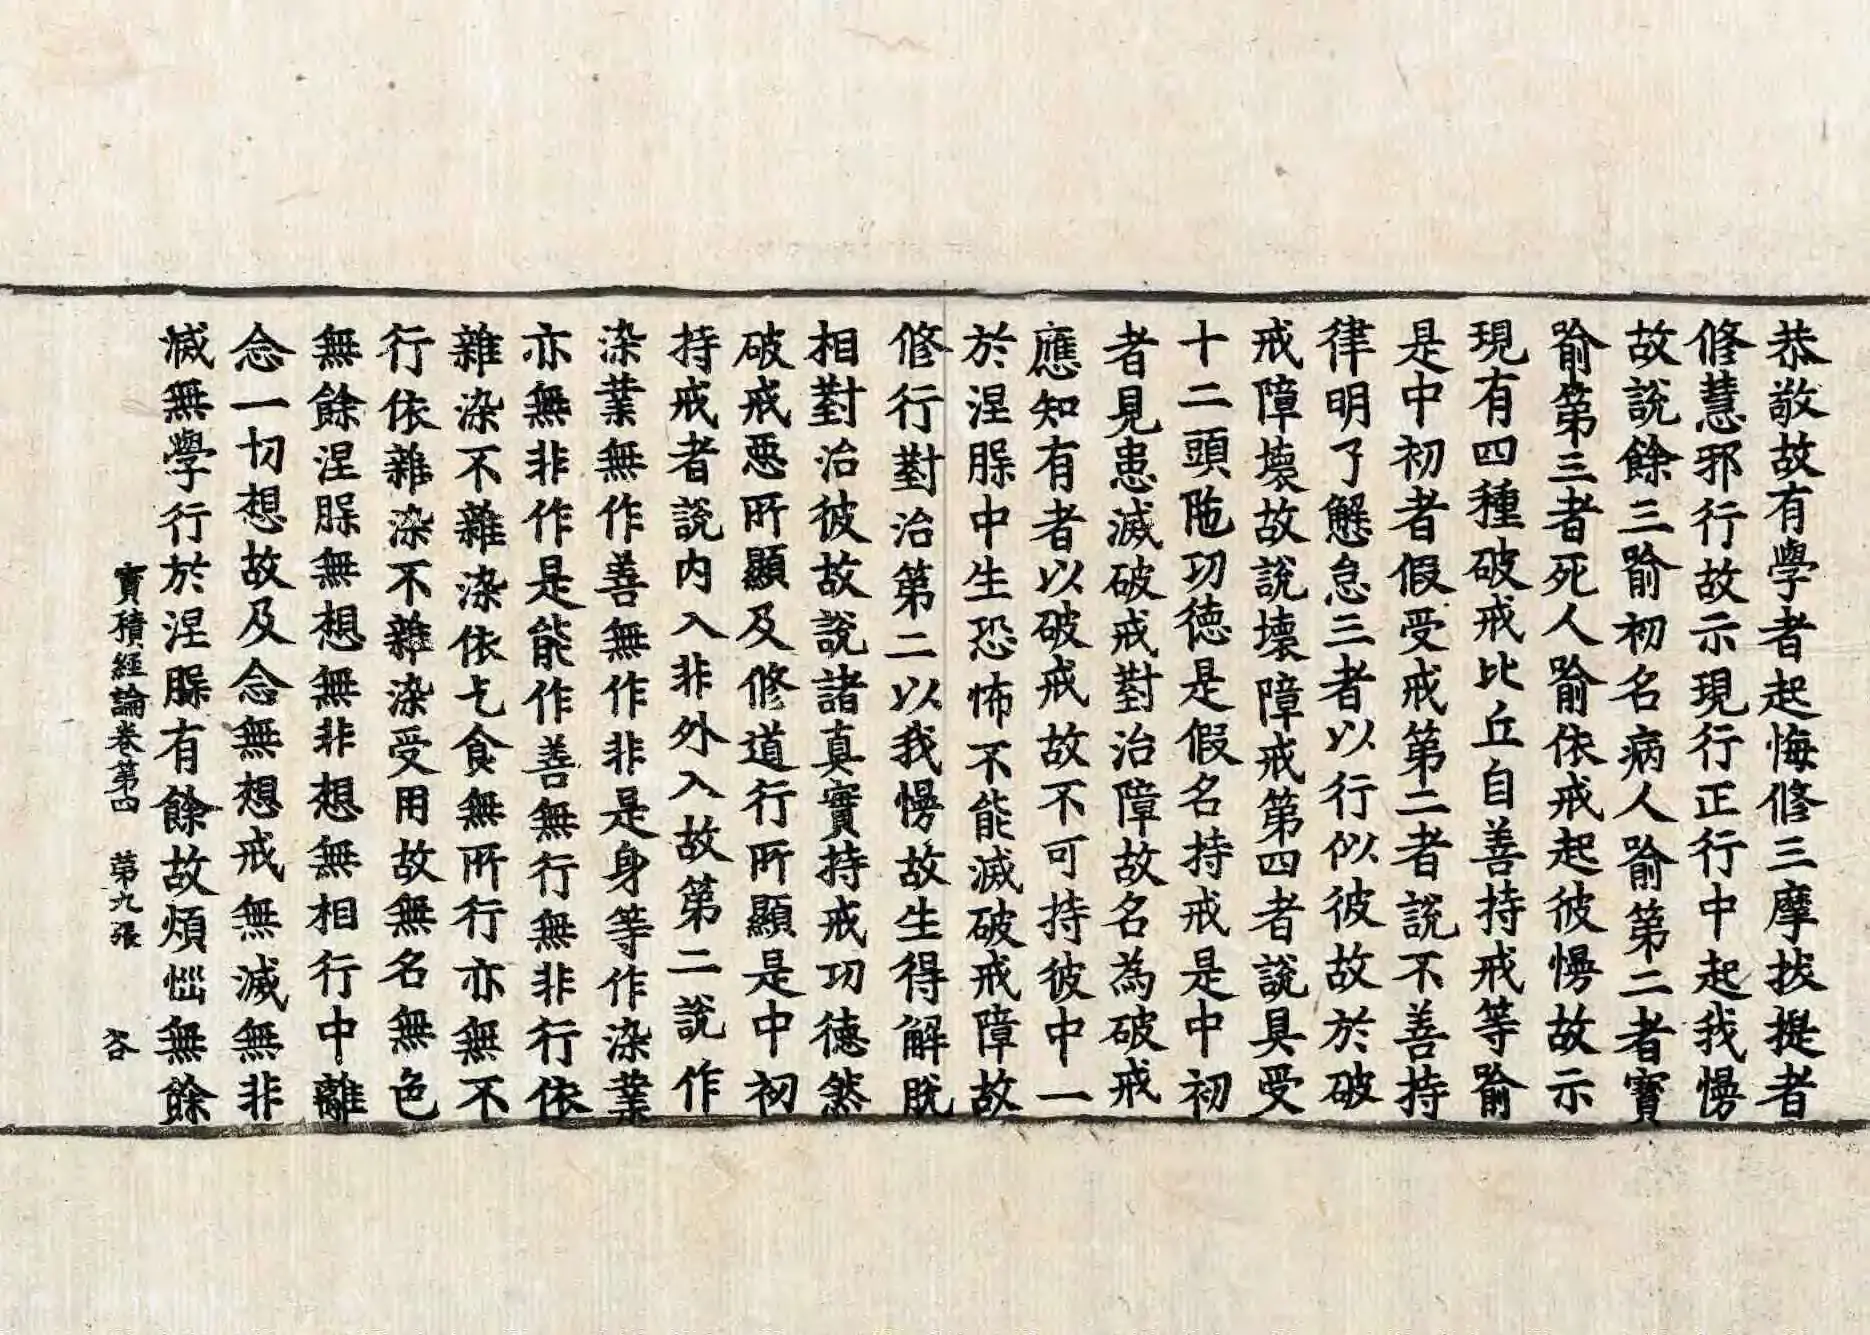 恭敬故有學者起悔修三摩拔提者
修慧邪行故示現行正行中起我慢
故說餘三喻初名病人喻第二者寶
喻第三者死人喻依戒起彼慢故示
現有四種破戒比丘自善持戒等喻
是中初者假受戒第二者說不善持
律明了懈怠三者以行似彼故於破
戒障壞故說壞障戒第四者說具受
十二頭陁功德是假名持戒是中初
者見患滅破戒對治障故名為破戒
應知有者以破戒故不可持彼中一
於涅脲中生恐怖不能滅破戒障故
修行對治第二以我慢故生得解脫
相對治彼故說諸真實持戒功德然
破戒惡所顯及修道行所顯是中初
持戒者說內入非外入故第二說作
染業無作善無作非是身等作染業
亦無非作是能作善無行無非行依
雜染不雜染依乞食無所行亦無不
行依雜染不雜染受用故無名無色
無餘涅脲無想無非想無相行中離
念一切想故及念無想戒無滅無非
滅無學行於涅脲有餘故煩惱無餘
寶積經論卷第四 第九張 吝